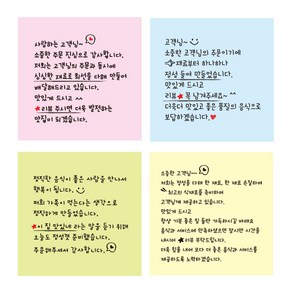 사랑하는 고객님~
소중한 주문 진심으로 감사합니다.
저희는 고객님의 주문과 동시에
싱싱한 재료로 최선을 다해 만들어
배달해드리고 있습니다.
맛있게 드시고 ^^
★리뷰 주시면 더욱 발전하는
맛집이 되겠습니다.

고객님~
소중한 고객님의 주문이기에
재료부터 하나하나
정성 들여 만들었습니다.
맛있게 드시고
리뷰★ 꼭 남겨주세요~ ^^
더욱더 맛있고 좋은 품질의 음식으로
보답하겠습니다.♥

정직한 음식이 좋은 사람을 만나서
행복이 됩니다.
저희 가족이 먹는다는 생각으로
정직하게 만들었습니다.
★이 집 맛있네 라는 말을 듣기 위해
오늘도 정성껏 준비했습니다.
주문해주셔서 감사합니다.

소중한 고객님~
저희는 정성을 다해 한 재료, 한 재료 손질하여
최고의 식재료를 준비하여
고객님께 제공하고 있습니다.
맛있게 드시고
항상 기분 좋은 일 가득하시길 바래요
음식과 서비스에 만족하셨으면 잠시만 시간을
내시어 ★리뷰 부탁드립니다.
다음 이용 시 보다 더 좋은 음식과 서비스를
제공하도록 노력하겠습니다.